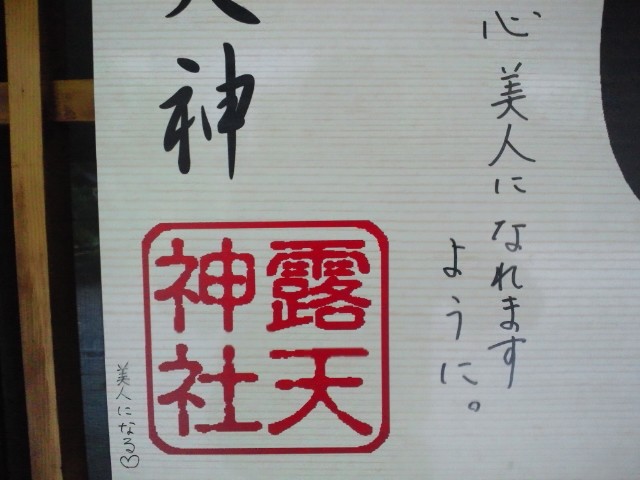 心美人になれます
ように。
神
露天
神社
美人になる♡